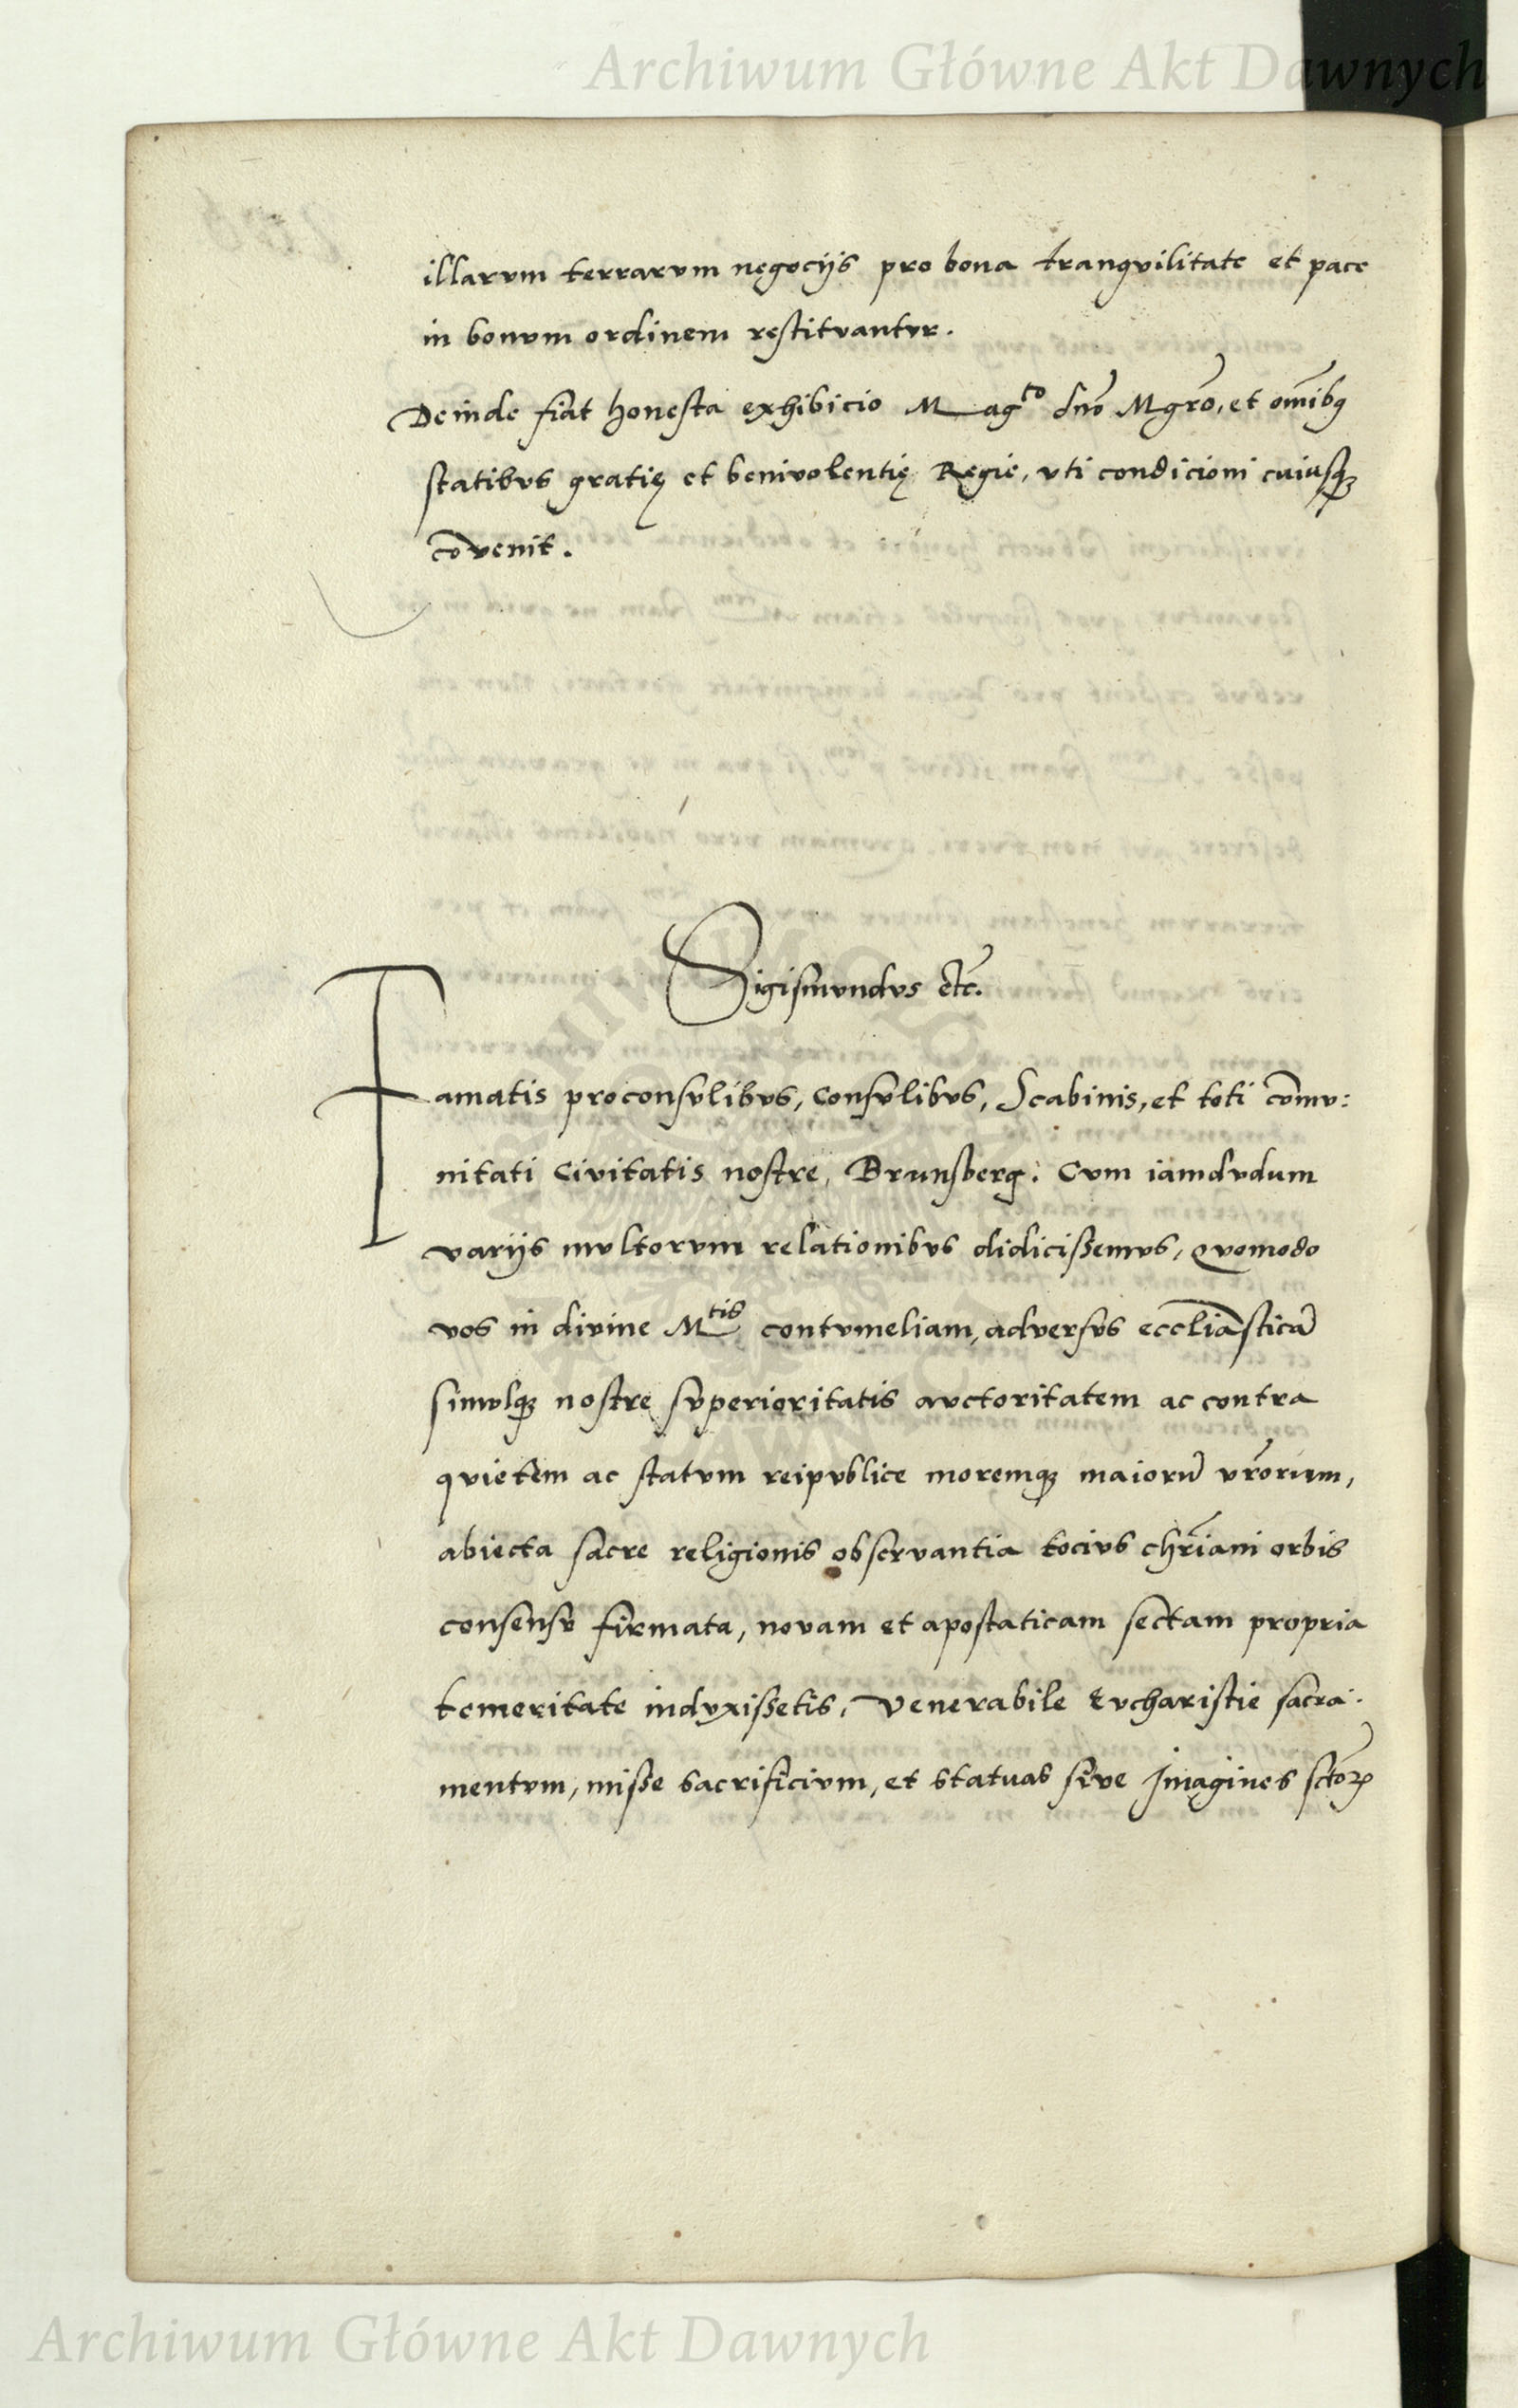 Archiwum Główne Akt Dawnych
illarvm terrarvm negocijs pro bona tranqvilitate et pace
in bonvm ordinem restitvantvr.
Deinde fiat honesta exhibicio Mag<sup>co</sup> dno Mgro, et omibq
statibvs gratię et benivolentię Regie, vti condicioni cuiusq;
cōvenit.
Sigismvndvs etc.
Famatis proconsvlibvs, Consvlibvs, Scabinis, et toti cōmv:
nitati Civitatis nostre, Brunsberg. Cvm iamdvdum
varijs mvltorvm relationibvs didicissemvs, Qvomodo
vos in divine M<sup>tis</sup> contvmeliam, adversvs eccliasticā
simvlq; nostre svperioritatis avctoritatem ac contra
qvietem ac statvm reipvblice moremq; maiorū vrorum,
abiecta sacre religionis observantia tocivs chriani orbis
consensv firmata, novam et apostaticam sectam propria
temeritate indvxissetis, Venerabile Evcharistie sacra:
mentvm, misse sacrificivm, et statvas sive Imagines sctorꝝ
Archiwum Główne Akt Dawnych